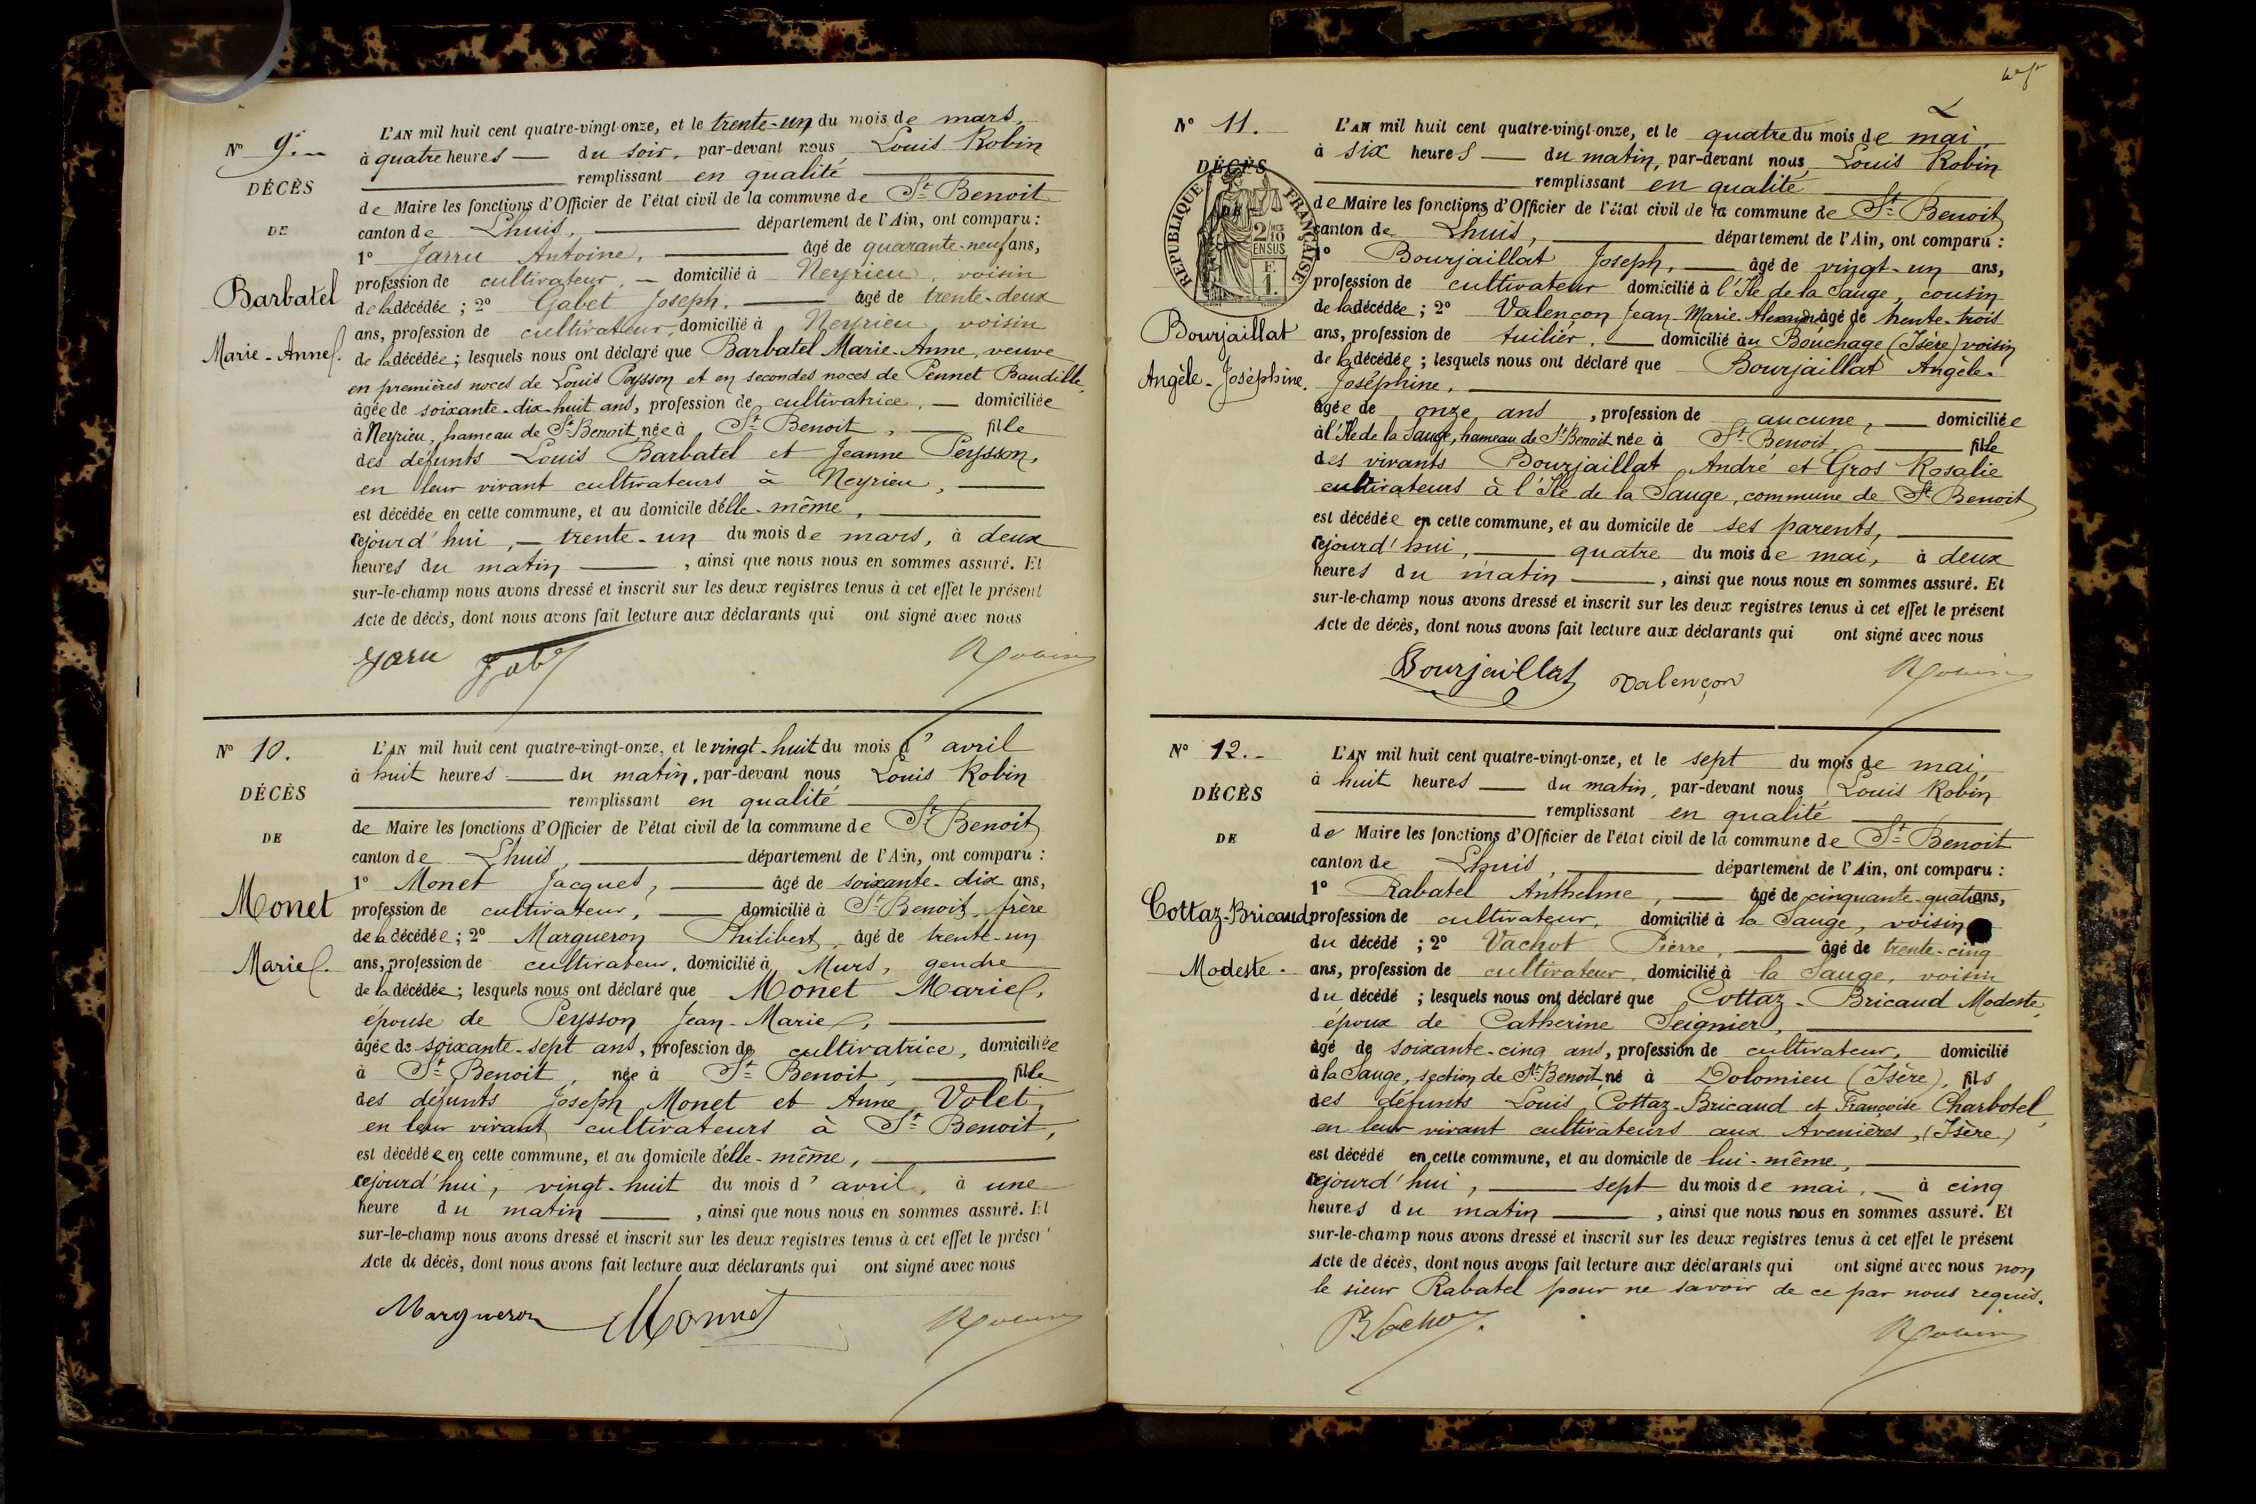 N° 9.
DÉCÈS
DE
Barbatel
Marie-Anne.
L'AN mil huit cent quatre-vingt-onze, et le trente-un du mois de mars,
à quatre heures du soir, par-devant nous Louis Robin
remplissant en qualité
de Maire les fonctions d'Officier de l'état civil de la commune de St Benoit
canton de Lhuis, département de l'Ain, ont comparu :
1° Jarru Antoine, âgé de quarante-neuf ans,
profession de cultivateur, domicilié à Neyrieu voisin
de la décédée ; 2° Gabet Joseph, âgé de trente-deux
ans, profession de cultivateur, domicilié à Neyrieu, voisin
de la décédée ; lesquels nous ont déclaré que Barbatel Marie-Anne, veuve
en premières noces de Louis Peysson et en secondes noces de Pennet Baudille,
âgée de soixante-dix-huit ans, profession de cultivatrice, domiciliée
à Neyrieu, hameau de St Benoit, née à St Benoit, fille
des défunts Louis Barbatel et Jeanne Peysson,
en leur vivant cultivateurs à Neyrieu,
est décédée en cette commune, et au domicile d'elle-même,
cejourd'hui, trente-un du mois de mars, à deux
heures du matin, ainsi que nous nous en sommes assuré. Et
sur-le-champ nous avons dressé et inscrit sur les deux registres tenus à cet effet le présent
Acte de décès, dont nous avons fait lecture aux déclarants qui ont signé avec nous
Jaru Robin
N° 10.
DÉCÈS
DE
Monet
Marie.
L'AN mil huit cent quatre-vingt-onze, et le vingt-huit du mois d'avril
à huit heures du matin, par-devant nous Louis Robin
remplissant en qualité
de Maire les fonctions d'Officier de l'état civil de la commune de St Benoit
canton de Lhuis, département de l'Ain, ont comparu :
1° Monet Jacques, âgé de soixante-dix ans,
profession de cultivateur, domicilié à St Benoit, frère
de la décédée ; 2° Margueron Philibert, âgé de trente-un
ans, profession de cultivateur, domicilié à Murs, gendre
de la décédée ; lesquels nous ont déclaré que Monet Marie,
épouse de Peysson Jean-Marie,
âgée de soixante-sept ans, profession de cultivatrice, domiciliée
à St Benoit, née à St Benoit, fille
des défunts Joseph Monet et Anne Volet,
en leur vivant cultivateurs à St Benoit,
est décédée en cette commune, et au domicile d'elle-même,
cejourd'hui, vingt-huit du mois d'avril, à une
heure du matin, ainsi que nous nous en sommes assuré. Et
sur-le-champ nous avons dressé et inscrit sur les deux registres tenus à cet effet le présen
Acte de décès, dont nous avons fait lecture aux déclarants qui ont signé avec nous
Margueron Monnet Robin
N° 11.
DÉCÈS
DE
RÉPUBLIQUE FRANÇAISE
2/10 EN SUS
Bourjaillat
Angèle-Joséphine.
L'AN mil huit cent quatre-vingt-onze, et le quatre du mois de mai,
à six heures du matin, par-devant nous Louis Robin
remplissant en qualité
de Maire les fonctions d'Officier de l'état civil de la commune de St Benoit
canton de Lhuis, département de l'Ain, ont comparu :
1° Bourjaillat Joseph, âgé de vingt-un ans,
profession de cultivateur domicilié à l'Ile de la Sauge, cousin
de la décédée ; 2° Valençon Jean-Marie-Alexandre âgé de trente-trois
ans, profession de tuilier, domicilié au Bouchage (Isère) voisin
de la décédée ; lesquels nous ont déclaré que Bourjaillat Angèle-
Joséphine,
âgée de onze ans, profession de aucune, domiciliée
à l'Ile de la Sauge, hameau de St Benoit née à St Benoit, fille
des vivants Bourjaillat André et Gros Rosalie
cultivateurs à l'Ile de la Sauge, commune de St Benoit
est décédée en cette commune, et au domicile de ses parents,
cejourd'hui, quatre du mois de mai, à deux
heures du matin, ainsi que nous nous en sommes assuré. Et
sur-le-champ nous avons dressé et inscrit sur les deux registres tenus à cet effet le présent
Acte de décès, dont nous avons fait lecture aux déclarants qui ont signé avec nous
Bourjaillat Valençon Robin
N° 12.
DÉCÈS
DE
Cottaz-Bricaud
Modeste.
L'AN mil huit cent quatre-vingt-onze, et le sept du mois de mai,
à huit heures du matin, par-devant nous Louis Robin
remplissant en qualité
de Maire les fonctions d'Officier de l'état civil de la commune de St Benoit
canton de Lhuis, département de l'Ain, ont comparu :
1° Rabatel Anthelme, âgé de cinquante-quatre ans,
profession de cultivateur, domicilié à la Sauge, voisin
du décédé ; 2° Vachot Pierre, âgé de trente-cinq
ans, profession de cultivateur, domicilié à la Sauge, voisin
du décédé ; lesquels nous ont déclaré que Cottaz-Bricaud Modeste,
époux de Catherine Seignier,
âgé de soixante-cinq ans, profession de cultivateur, domicilié
à la Sauge, section de St Benoit, né à Dolomieu (Isère), fils
des défunts Louis Cottaz-Bricaud et Françoise Charbotel,
en leur vivant cultivateurs aux Avenières, (Isère)
est décédé en cette commune, et au domicile de lui-même,
cejourd'hui, sept du mois de mai, à cinq
heures du matin, ainsi que nous nous en sommes assuré. Et
sur-le-champ nous avons dressé et inscrit sur les deux registres tenus à cet effet le présent
Acte de décès, dont nous avons fait lecture aux déclarants qui ont signé avec nous non
le sieur Rabatel pour ne savoir de ce par nous requis.
Robin